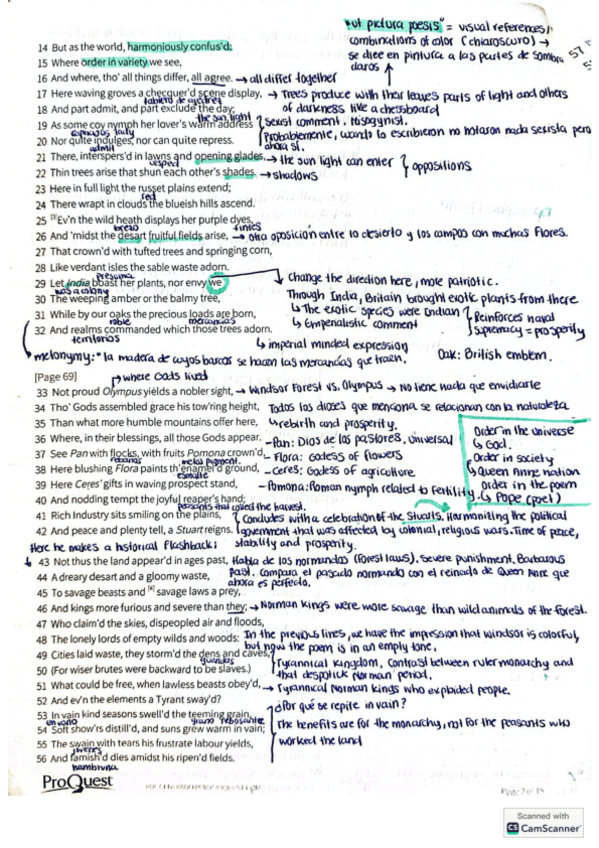 "ut pictura poesis" = visual references,
combinations of color (chiaroscuro) →
se dice en pintura a las partes de sombra
claros
14 But as the world, harmoniously confus'd:
15 Where order in variety we see,
16 And where, tho' all things differ, all agree. → all differ together
17 Here waving groves a checquer'd scene display, → Trees produce with their leaves parts of light and others
tablero de ajedrez
of darkness like a chessboard
18 And part admit, and part exclude the day;
the sun light
19 As some coy nymph her lover's warm address
Sexist comment. Misogynist.
capricious lady
20 Nor quite indulges, nor can quite repress.
Probablemente, cuando lo escribieron no notaron nada sexista pero
ahora sí.
admit
21 There, interspers'd in lawns and opening glades, → the sun light can enter
oppositions
22 Thin trees arise that shun each other's shades. → shadows
23 Here in full light the russet plains extend;
red
24 There wrapt in clouds the blueish hills ascend.
25 [3] Ev'n the wild heath displays her purple dyes,
brezo
tintes
26 And 'midst the desart fruitful fields arise, → otra oposición entre lo desierto y los campos con muchas flores.
27 That crown'd with tufted trees and springing corn,
28 Like verdant isles the sable waste adorn.
presuma
29 Let India boast her plants, nor envy we
Change the direction here, more patriotic.
was a colony
30 The weeping amber or the balmy tree,
Through India, Britain brought exotic plants from there
31 While by our oaks the precious loads are born,
↳ The exotic species were Indian
Reinforces naval
roble
mercancías
32 And realms commanded which those trees adorn.
↳ Imperialistic comment
supremacy = prosperity
territorios
↳ imperial minded expression
melonymy: "la madera de cuyos barcos se hacen las mercancías que traen.
Oak: British emblem.
[Page 69]
where Gods lived
33 Not proud Olympus yields a nobler sight, → Windsor Forest vs. Olympus → No tiene nada que envidiarte
34 Tho' Gods assembled grace his tow'ring height, Todos los dioses que menciona se relacionan con la naturaleza
35 Than what more humble mountains offer here, ↳ rebirth and prosperity.
36 Where, in their blessings, all those Gods appear. - Pan: Dios de los pastores, universal
37 See Pan with flocks, with fruits Pomona crown'd, - Flora: godess of flowers
38 Here blushing Flora paints th' enamel'd ground, - Ceres: Godess of agriculture
esmalte
39 Here Ceres' gifts in waving prospect stand, - Pomona: Roman nymph related to fertility.
40 And nodding tempt the joyful reaper's hand;
Order in the universe
↳ God.
Order in society
↳ Queen Anne nation
order in the poem
↳ Pope (poet)
41 Rich Industry sits smiling on the plains,
Concludes with a celebration of the Stuarts. Harmoniting the political
42 And peace and plenty tell, a Stuart reigns.
government that was affected by colonial, religious wars. Time of peace,
stability and prosperity.
Here he makes a historical flashback:
↳ 43 Not thus the land appear'd in ages past, Habla de los normandos (Forest laws). Severe punishment. Barbarous
44 A dreary desart and a gloomy waste, past. Compara el pasado normando con el reinado de Queen Anne que
ahora es perfecto.
45 To savage beasts and [4] savage laws a prey,
46 And kings more furious and severe than they; → Norman kings were more savage than wild animals of the forest.
47 Who claim'd the skies, dispeopled air and floods,
48 The lonely lords of empty wilds and woods: In the previous lines, we have the impression that windsor is colorful,
but now the poem is in an empty tone.
49 Cities laid waste, they storm'd the dens and caves,
guaridas
Tyrannical kingdom. Contrast between ruler monarchy and
50 (For wiser brutes were backward to be slaves.)
that despotick Norman period.
51 What could be free, when lawless beasts obey'd, → Tyrannical Norman kings who exploided people.
52 And ev'n the elements a Tyrant sway'd?
¿Por qué se repite in vain?
53 In vain kind seasons swell'd the teeming grain,
en vano
grano rebosante
54 Soft show'rs distill'd, and suns grew warm in vain;
The benefits are for the monarchy, not for the peasants who
55 The swain with tears his frustrate labour yields,
worked the land
jóvenes
56 And famish'd dies amidst his ripen'd fields.
hambruna
ProQuest
Scanned with
CS CamScanner